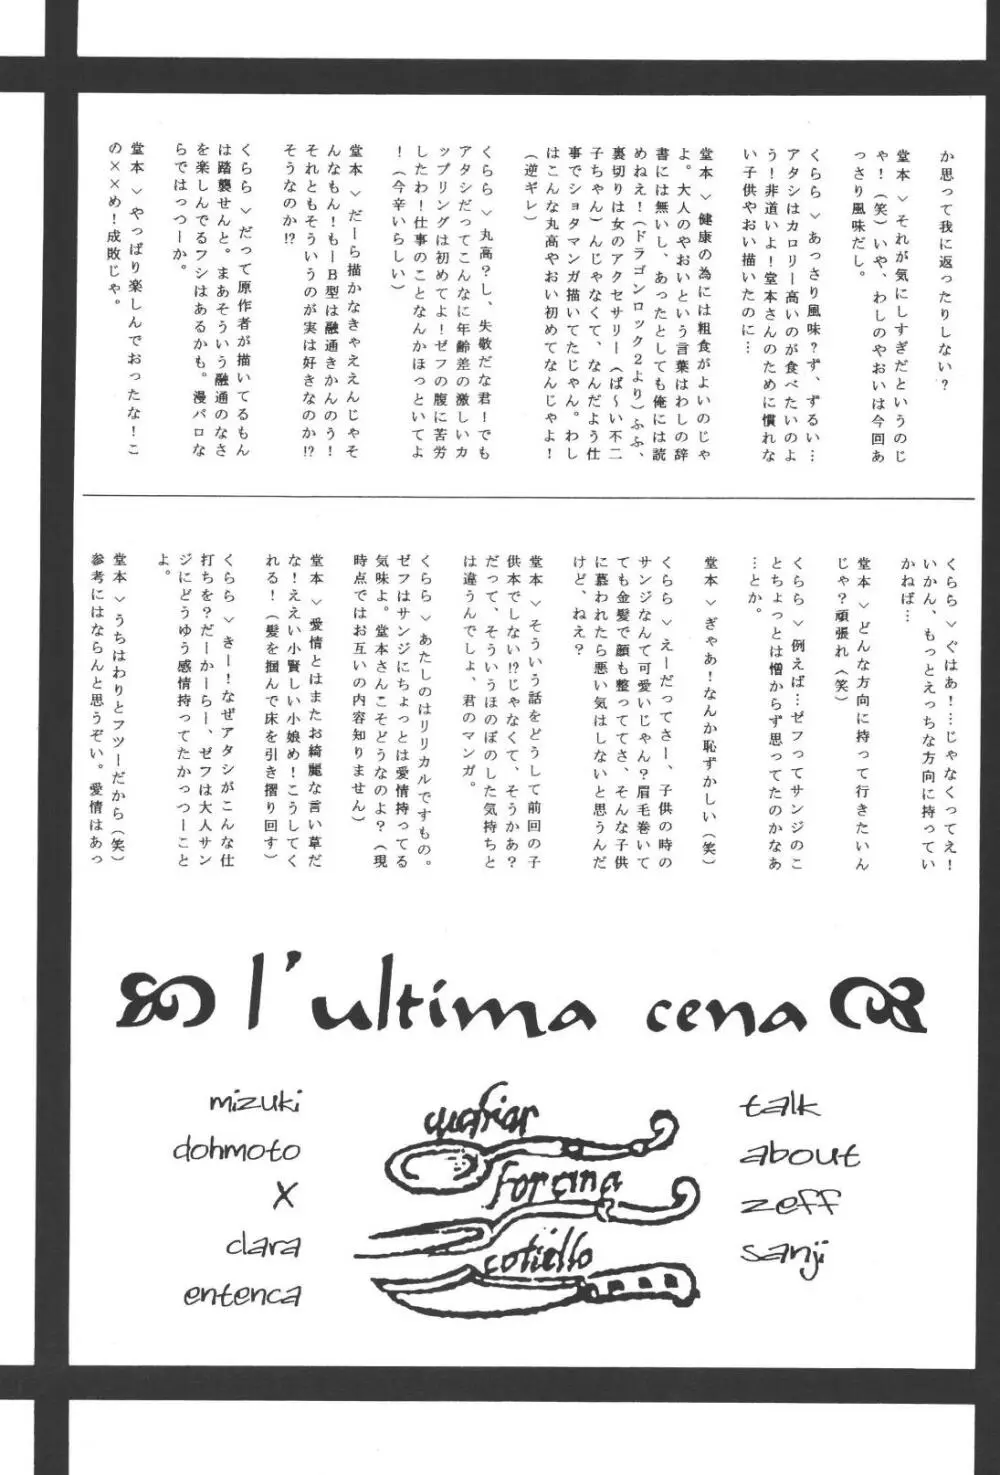 か思って我に返ったりしない？
堂本 ＞ それが気にしすぎだというのじ
ゃ！（笑）いや、わしのやおいは今回あ
っさり風味だし。
くらら ＞ あっさり風味？ず、ずるい…
アタシはカロリー高いのが食べたいのよ
う！非道いよ！堂本さんのために慣れな
い子供やおい描いたのに…
堂本 ＞ 健康の為には粗食がよいのじゃ
よ。大人のやおいという言葉はわしの辞
書には無いし、あったとしても俺には読
めねえ！（ドラゴンロック２より）ふふ、
裏切りは女のアクセサリー（ば〜い不二
子ちゃん）んじゃなくて、なんだよう仕
事でショタマンガ描いてたじゃん。わし
はこんな丸高やおい初めてなんじゃよ！
（逆ギレ）
くらら ＞ 丸高？し、失敬だな君！でも
アタシだってこんなに年齢差の激しいカ
ップリングは初めてよ！ゼフの腹に苦労
したわ！仕事のことなんかほっといてよ
！（今辛いらしい）
堂本 ＞ だーら描かなきゃええんじゃそ
んなもん！もーＢ型は融通きかんのう！
それともそういうのが実は好きなのか!?
そうなのか!?
くらら ＞ だって原作者が描いてるもん
は踏襲せんと。まあそういう融通のなさ
を楽しんでるフシはあるかも。漫パロな
らではっつーか。
堂本 ＞ やっぱり楽しんでおったな！こ
の××め！成敗じゃ。
くらら ＞ ぐはあ！…じゃなくってえ！
いかん、もっとえっちな方向に持ってい
かねば…
堂本 ＞ どんな方向に持って行きたいん
じゃ？頑張れ（笑）
くらら ＞ 例えば…ゼフってサンジのこ
とちょっとは憎からず思ってたのかなあ
…とか。
堂本 ＞ ぎゃあ！なんか恥ずかしい（笑）
くらら ＞ えーだってさー、子供の時の
サンジなんて可愛いじゃん？眉毛巻いて
ても金髪で顔も整っててさ、そんな子供
に慕われたら悪い気はしないと思うんだ
けど、ねえ？
堂本 ＞ そういう話をどうして前回の子
供本でしない!?じゃなくて、そうかあ？
だって、そういうほのぼのした気持ちと
は違うんでしょ、君のマンガ。
くらら ＞ あたしのはリリカルですもの。
ゼフはサンジにちょっとは愛情持ってる
気味よ。堂本さんこそどうなのよ？（現
時点ではお互いの内容知りません）
堂本 ＞ 愛情とはまたお綺麗な言い草だ
な！ええい小賢しい小娘め！こうしてく
れる！（髪を掴んで床を引き摺り回す）
くらら ＞ きー！なぜアタシがこんな仕
打ちを？だーかーらー、ゼフは大人サン
ジにどうゆう感情持ってたかっつーこと
よ。
堂本 ＞ うちはわりとフツーだから（笑）
参考にはならんと思うぞい。愛情はあっ
l'ultima cena
mizuki
dohmoto
X
clara
entenca
forcina
talk
about
zeff
sanji